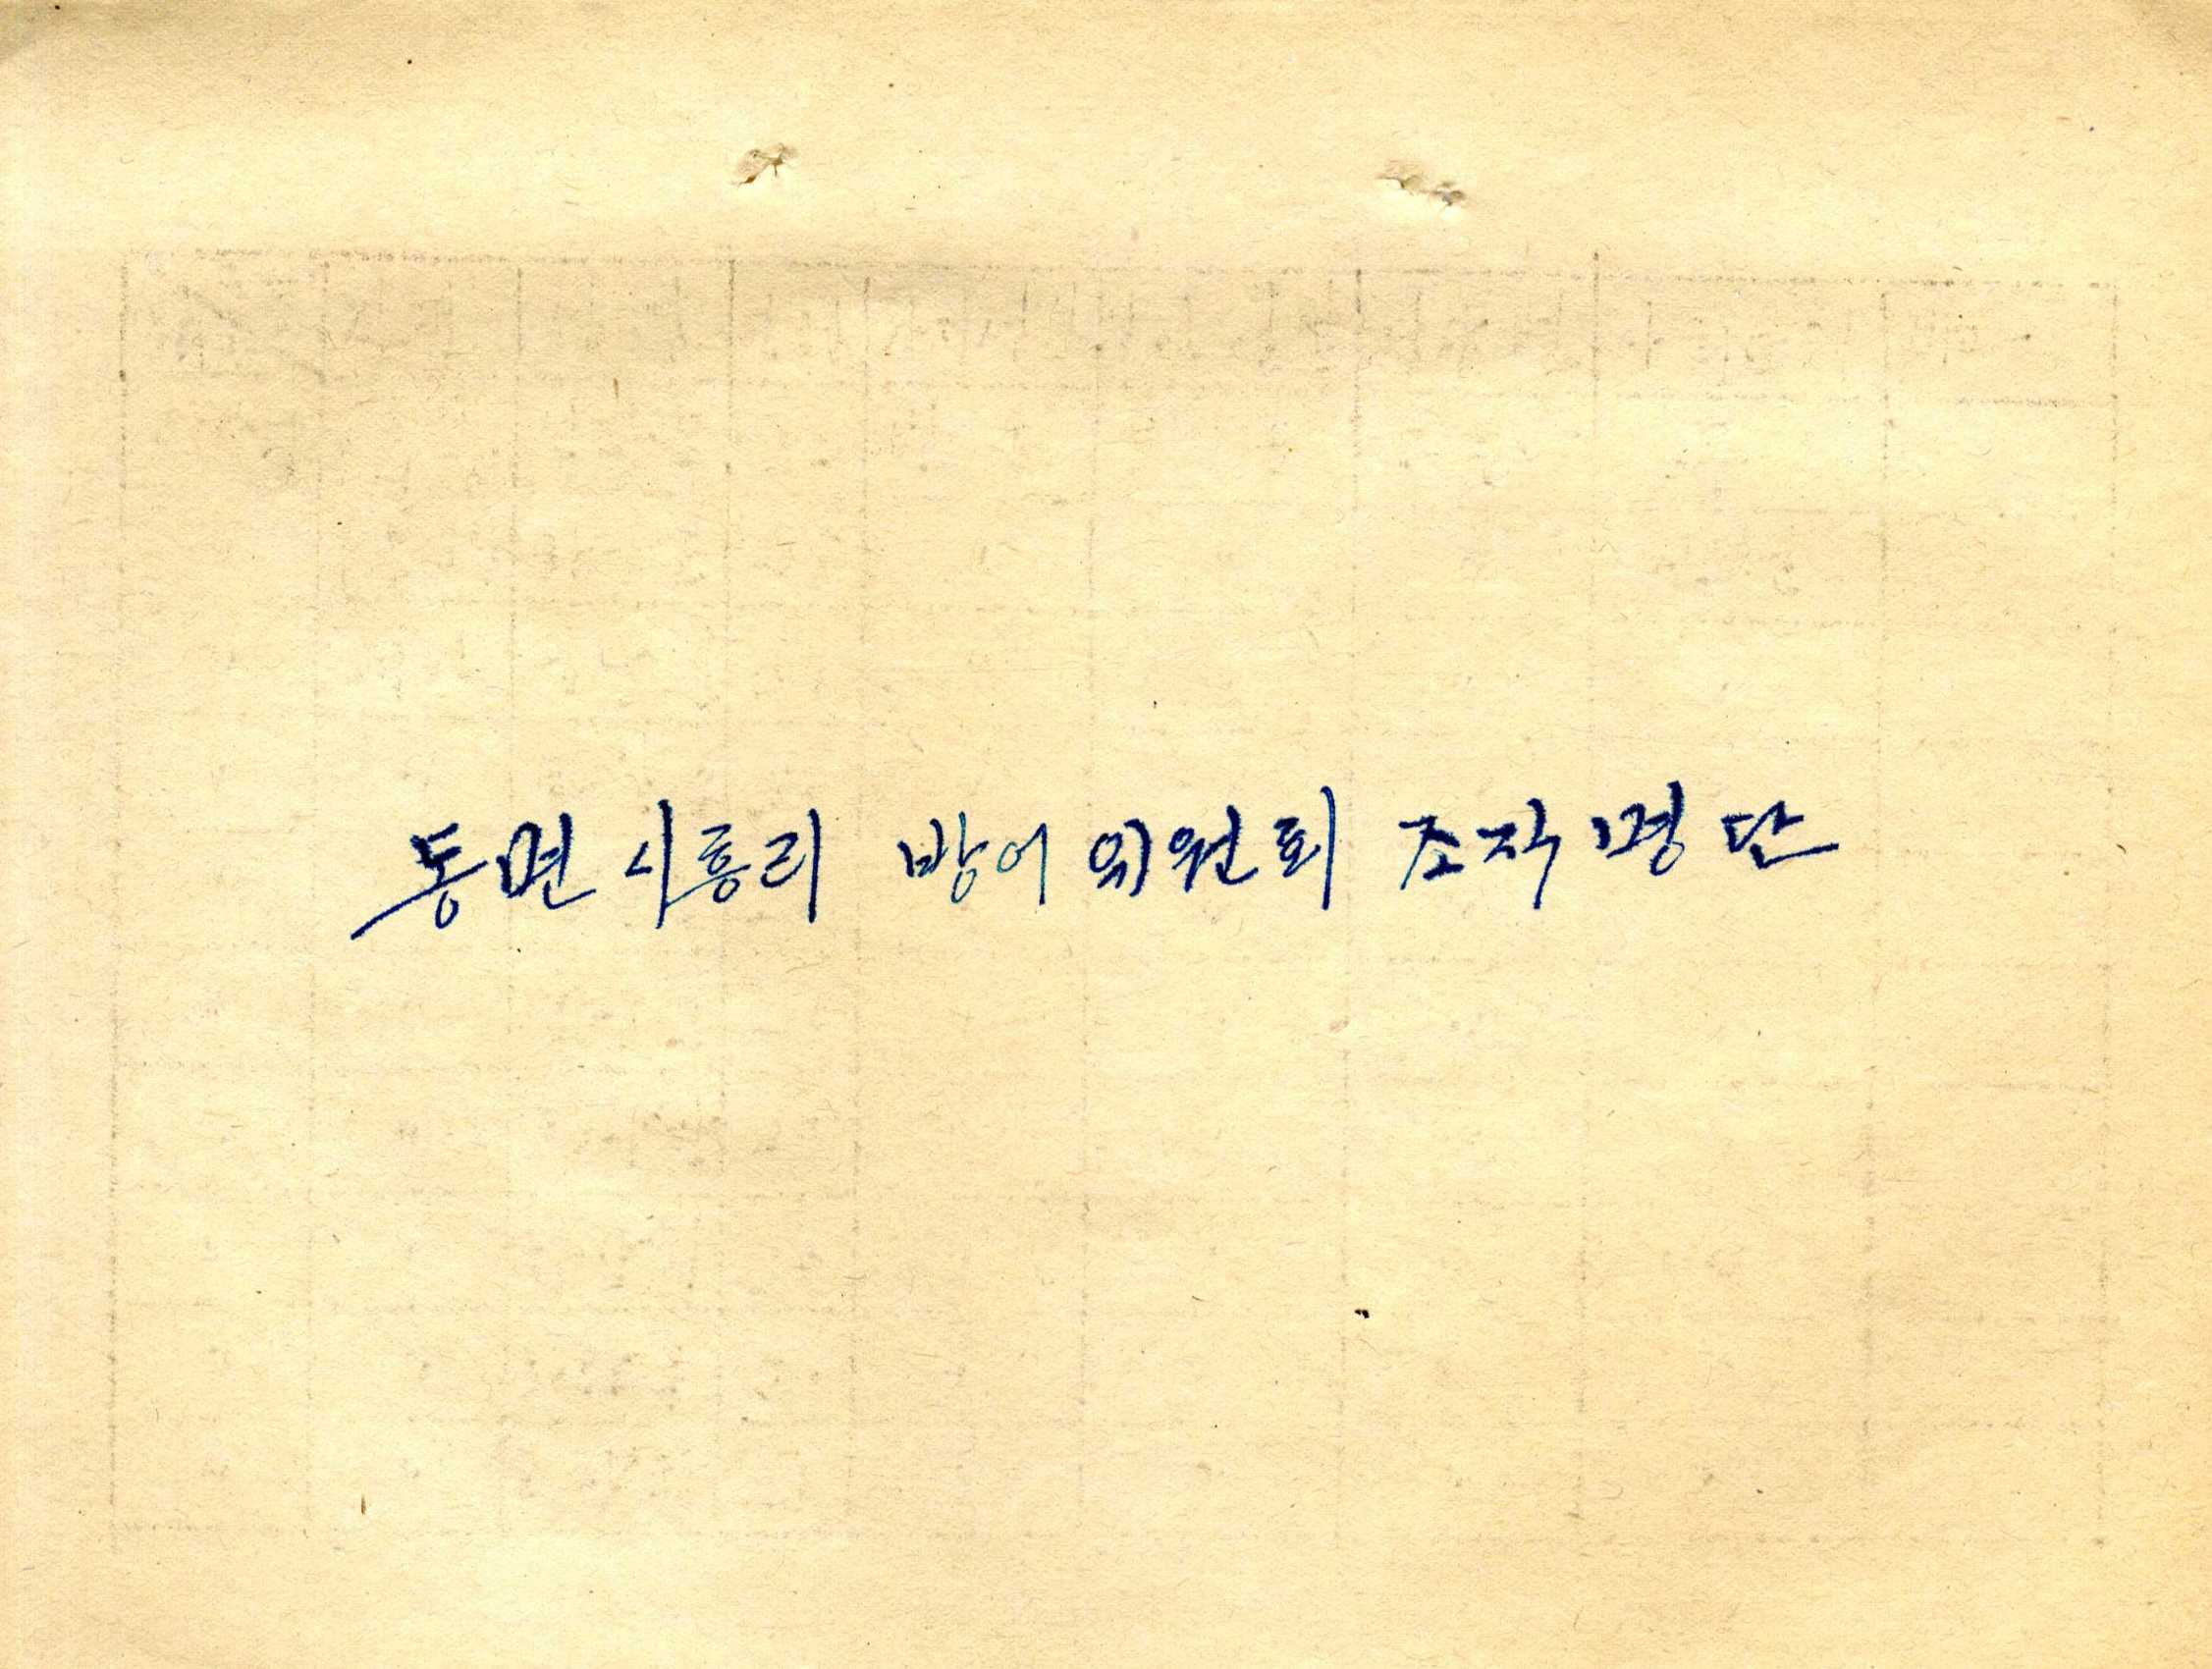 동면 시흥리 방어 위원회 조직 명단